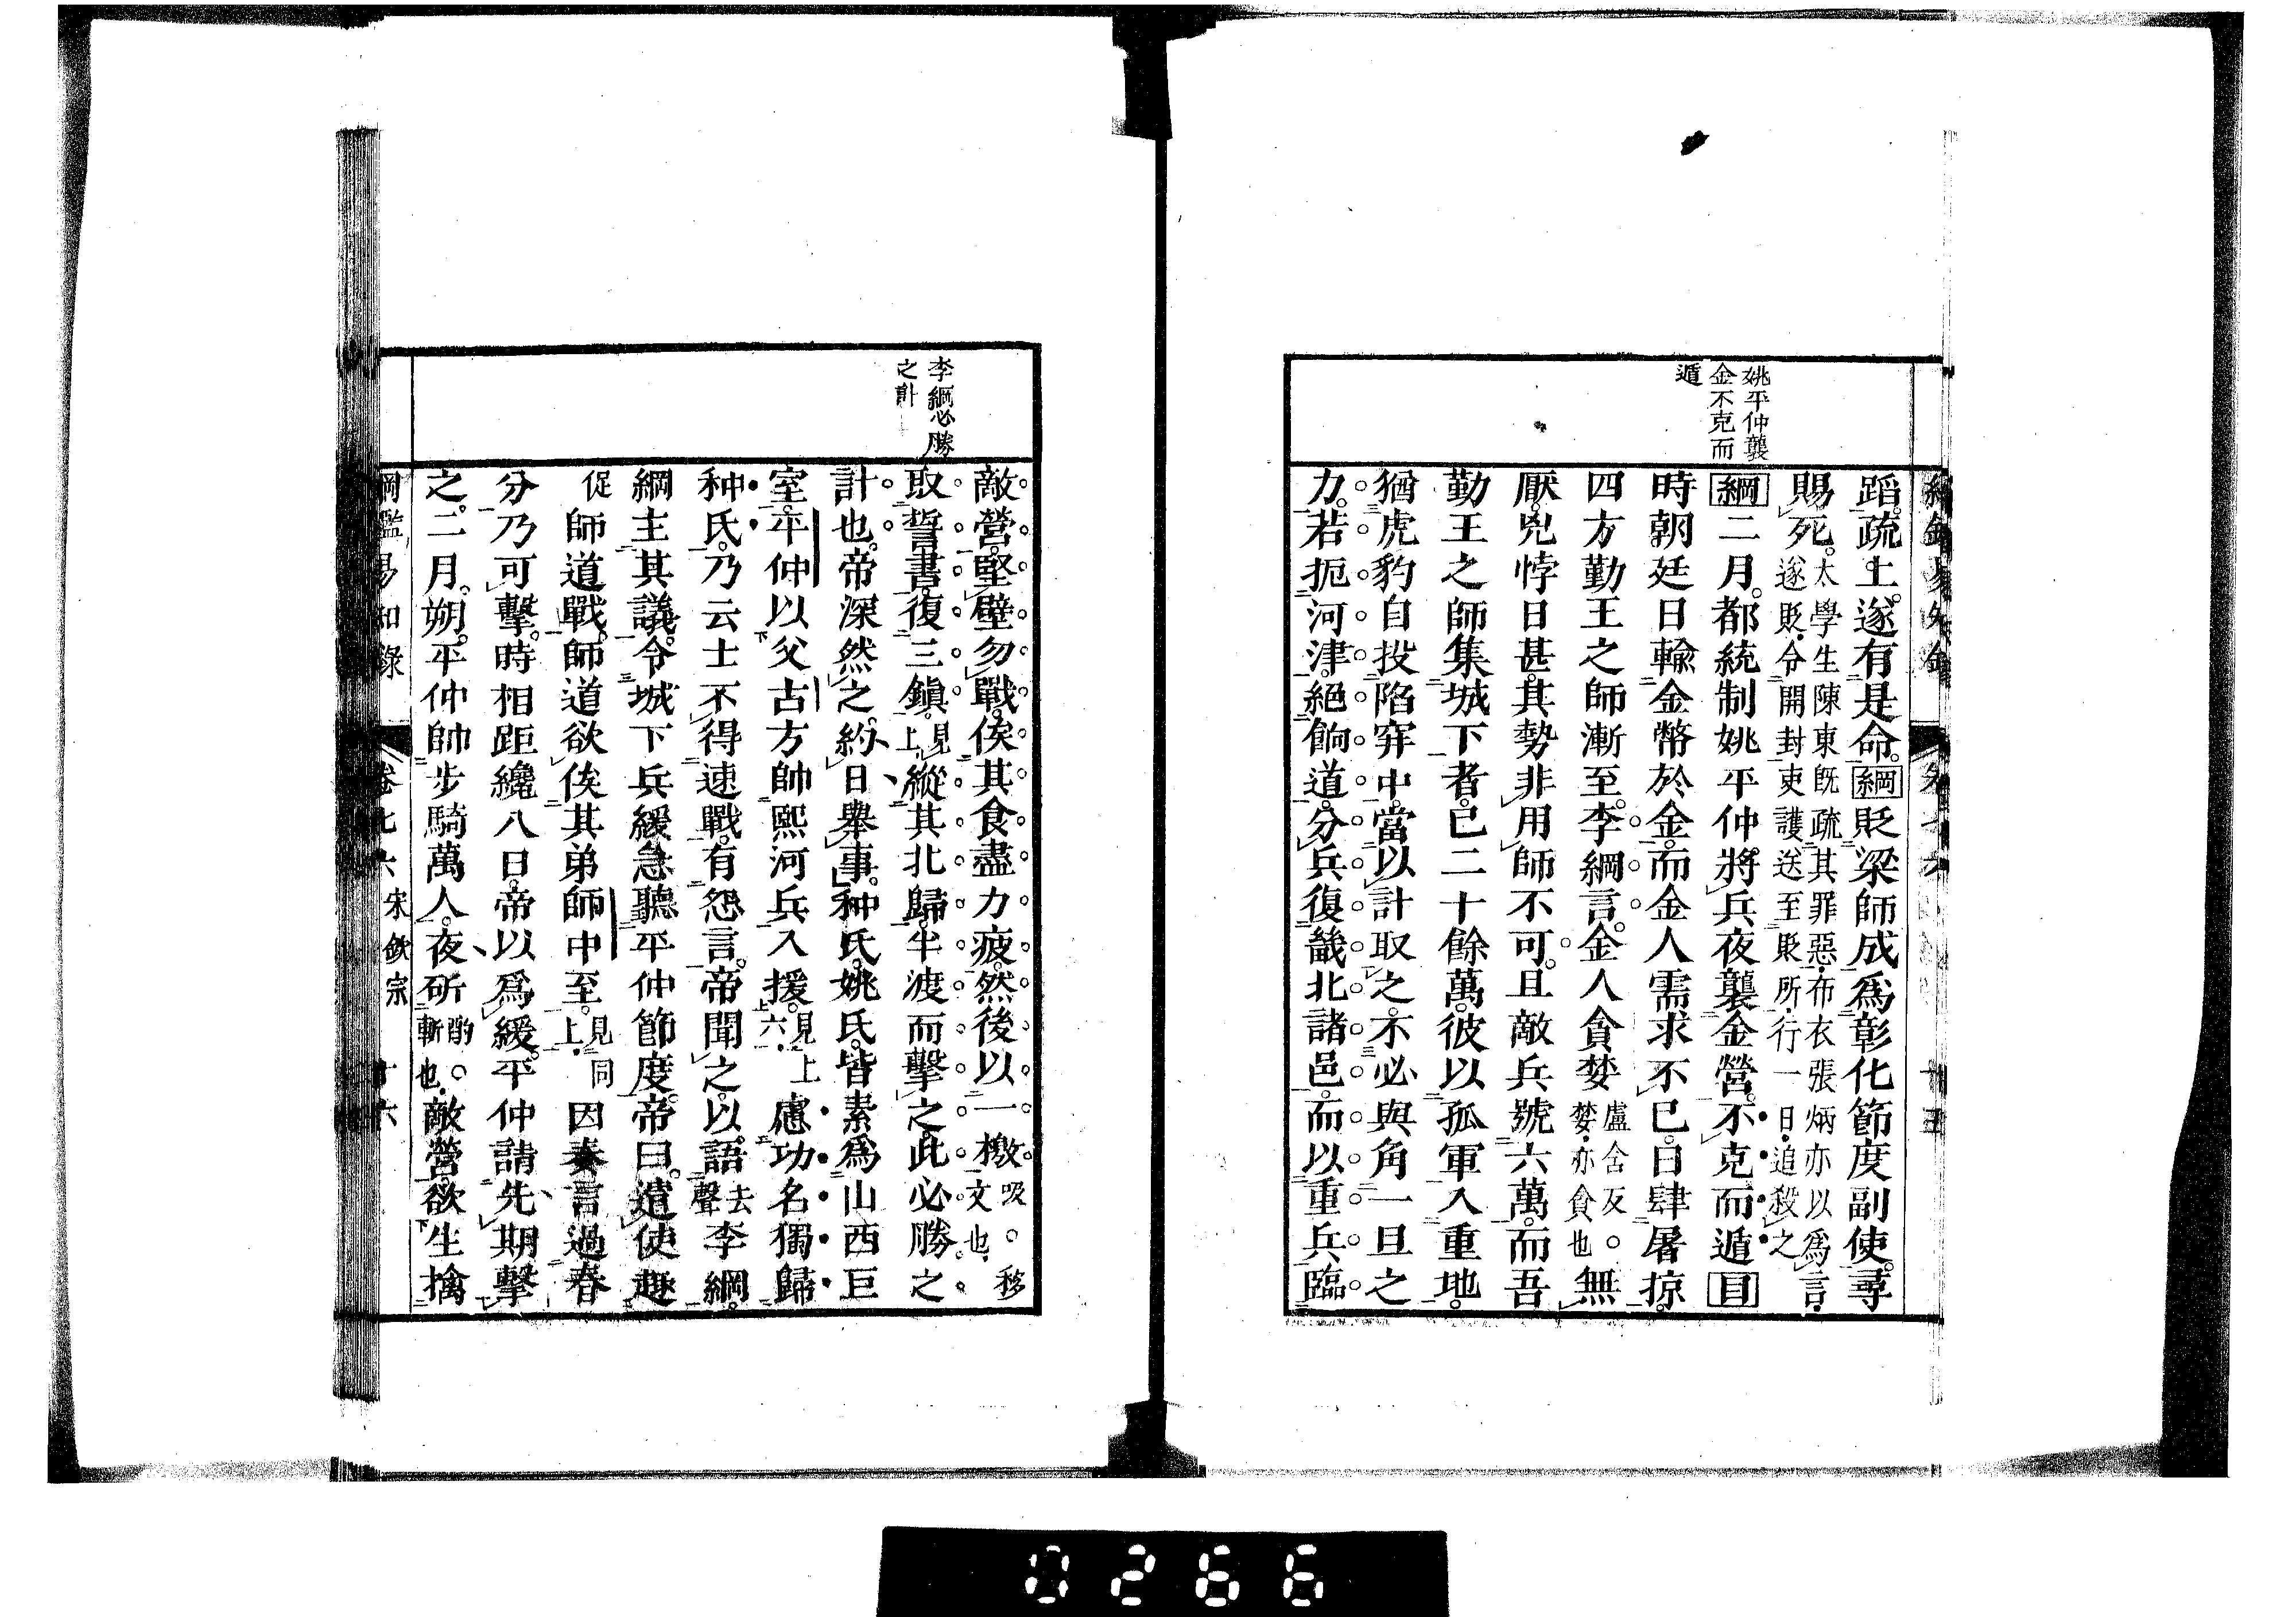 姚平仲襲
金不克而
遁
蹈。疏上。遂有是命。綱貶梁師成爲彰化節度副使。尋
賜死。太學生陳東既疏其罪惡。布衣張炳亦以爲言。
遂貶。令開封吏護送至貶所。行一日。追殺之。
綱二月。都統制姚平仲。將兵夜襲金營。不克而遁目
時朝廷日輸金幣於金。而金人需求不已。日肆屠掠。
四方勤王之師漸至。李綱言。金人貪婪盧含反。○婪。亦貪也無
厭。兇悖日甚。其勢非用師不可。且敵兵號六萬。而吾
勤王之師集城下者。已二十餘萬。彼以孤軍入重地。
猶虎豹自投陷穽中。當以計取之。不必與角一旦之
力。若扼河津。絕餉道。分兵復畿北諸邑。而以重兵臨
李綱必勝
之計
敵營。堅壁勿戰。俟其食盡力疲。然後以一檄吸。○移文也。
取誓書。復三鎭。見上縱其北歸。半渡而擊之。此必勝之
計也。帝深然之。約日舉事。种氏姚氏。皆素爲山西巨
室。平仲以父古方帥熙河兵入援。見上六。慮功名獨歸
种氏。乃云士不得速戰。有怨言。帝聞之。以語去聲李綱。
綱主其議。令城下兵緩急聽平仲節度。帝曰。遣使趣
促師道戰。師道欲俟其弟師中至。見同上。因奏言過春
分乃可擊。時相距纔八日。帝以爲緩。平仲請先期擊
之。二月。朔。平仲帥步騎萬人。夜斫酌。○斬也。敵營。欲生擒
綱鑑易知錄 卷七六 宋欽宗 十六